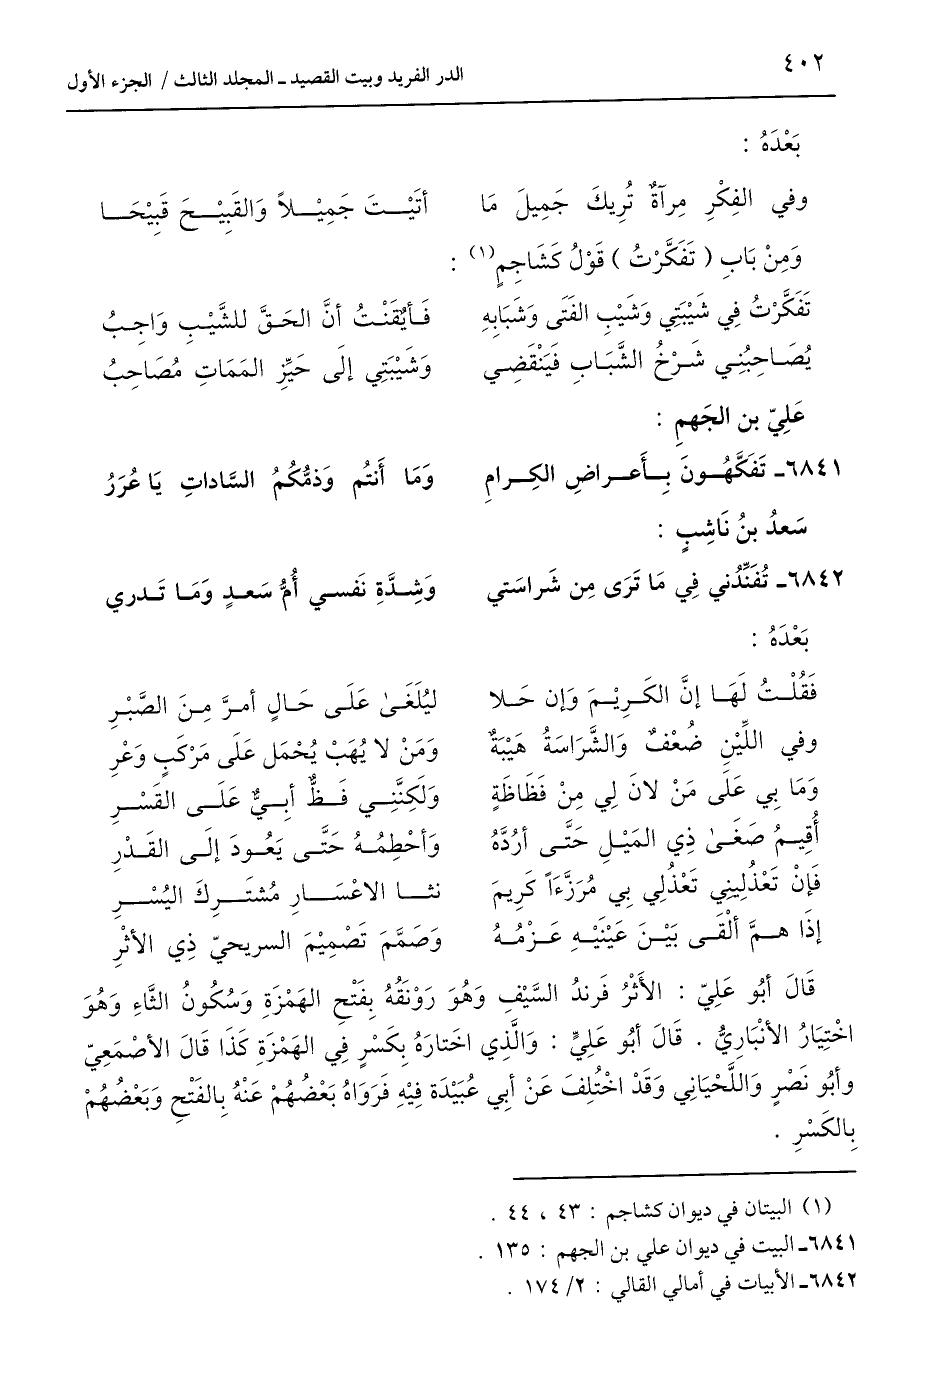 ٤٠٢
الدر الفريد وبيت القصيد ـ المجلد الثالث / الجزء الأول
بَعْدَهُ :
وفي الفِكْرِ مِرآةٌ تُرِيكَ جَمِيلَ مَا أتَيْـتَ جَمِيْـلاً وَالقَبِيْـحَ قَبِيْحَـا
وَمِنْ بَابِ ( تَفَكَّرْتُ ) قَوْلُ كَشَاجِمٍ(١) :
تَفَكَّرْتُ فِي شَيْبَتِي وَشَيْبِ الفَتَى وَشَبَابِهِ فَـأيْقَنْـتُ أنَّ الحَـقَّ للشَّيْـبِ وَاجِـبُ
يُصَـاحِبُنِـي شَـرْخُ الشَّبَـابِ فَيَنْقَضِـي وَشَيْبَتِي إلَى حَيِّزِ المَمَاتِ مُصَاحِبُ
عَلِيّ بن الجَهمِ :
٦٨٤١ـ تَفَكَّهُـونَ بِـأَعـراضِ الكِـرامِ وَمَا أَنتُم وَذمُّكُمُ السَّاداتِ يَا عُرَرُ
سَعدُ بنُ نَاشِبٍ :
٦٨٤٢ـ تُفَنِّدُني فِي مَا تَرَى مِن شَراسَتي وَشِـدَّةِ نَفسـي أُمُّ سَعـدٍ وَمَـا تَـدري
بَعْدَهُ :
فَقُلْـتُ لَهَـا إنَّ الكَـرِيْـمَ وَإن حَـلا ليُلغَـىٰ عَلَـى حَـالٍ أمـرَّ مِـنَ الصَّبْـرِ
وفي اللِّيْنِ ضُعْفٌ وَالشَّرَاسَةُ هَيْبَةٌ وَمَنْ لا يُهَبْ يُحْمَل عَلَى مَرْكَبٍ وَعْرِ
وَمَا بِي عَلَى مَنْ لانَ لِي مِنْ فَظَاظَةٍ وَلَكِنَّنِـي فَـظٌّ أبِـيٌّ عَلَـى القَسْـرِ
أُقِيـمُ صَغَىٰ ذِي المَيْـلِ حَتَّـى أرُدَّهُ وَأحْطِمُـهُ حَتَّـى يَعُـودَ إلَـى القَـدْرِ
فَإنْ تَعْذُلِينِي تَعْذُلِي بِي مُرَزَّءَاً كَرِيمَ نثـا الاعْسَـارِ مُشْتَـرِكَ اليُسْـرِ
إذَا هـمَّ ألْقَـى بَيْـنَ عَيْنَيْـهِ عَـزْمُـهُ وَصَمَّمَ تَصْمِيْمَ السريحيّ ذِي الأثْرِ
قَالَ أبُو عَلِيّ : الأثْرُ فَرِندُ السَّيْفِ وَهُوَ رَوْنَقُهُ بِفَتْحِ الهَمْزَةِ وَسُكُونُ الثَّاءِ وَهُوَ
اخْتِيَارُ الأنْبَارِيُّ . قَالَ أبُو عَلِيٍّ : وَالَّذِي اختَارَهُ بِكَسْرٍ فِي الهَمْزَةِ كَذَا قَالَ الأصْمَعِيّ
وأبُو نَصْرٍ وَاللَّحْيَانِي وَقَدْ اخْتُلِفَ عَنْ أبي عُبَيْدَة فِيْهِ فَرَوَاهُ بَعْضُهُمْ عَنْهُ بِالفَتْحِ وَبَعْضُهُمْ
بِالكَسْرِ .
(١) البيتان في ديوان كشاجم : ٤٣ ، ٤٤ .
٦٨٤١ـ البيت في ديوان علي بن الجهم : ١٣٥ .
٦٨٤٢ـ الأبيات في أمالي القالي : ٢/ ١٧٤ .